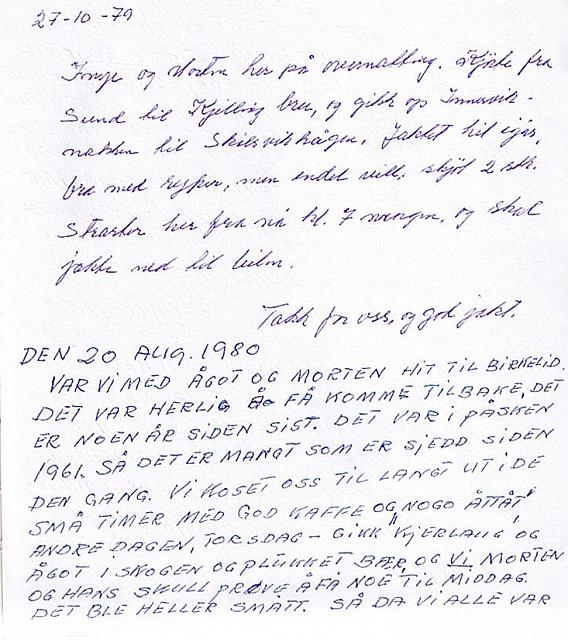 27-10-79
Inge og Morten her på overnatting. Kjørte fra
Sund til Kjelling bru, og gikk op Innervik-
nakken til Skilsvikhågen. Jaktet hit igår,
bra med ryper, men endel vill. skjøt 2 stk.
Starter her fra nå kl. 7 morgen, og skal
jakte ned til bilen.
Takk for oss, og god jakt.
DEN 20 AUG. 1980
VAR VI MED ÅGOT OG MORTEN HIT TIL BIRKELID.
DET VAR HERLIG Å FÅ KOMME TILBAKE, DET
ER NOEN ÅR SIDEN SIST. DET VAR I PÅSKEN
1961. SÅ DET ER MANGT SOM ER SJEDD SIDEN
DEN GANG. VI KOSET OSS TIL LANGT UT I DE
SMÅ TIMER MED GOD KAFFE OG "NOGO ÅTTÅT"
ANDRE DAGEN, TORSDAG - GIKK KJERLAUG OG
ÅGOT I SKOGEN OG PLUKKET BÆR, OG VI MORTEN
OG HANS SKULL PRØVE Å FÅ NOE TIL MIDDAG.
DET BLE HELLER SMÅTT. SÅ DA VI ALLE VAR